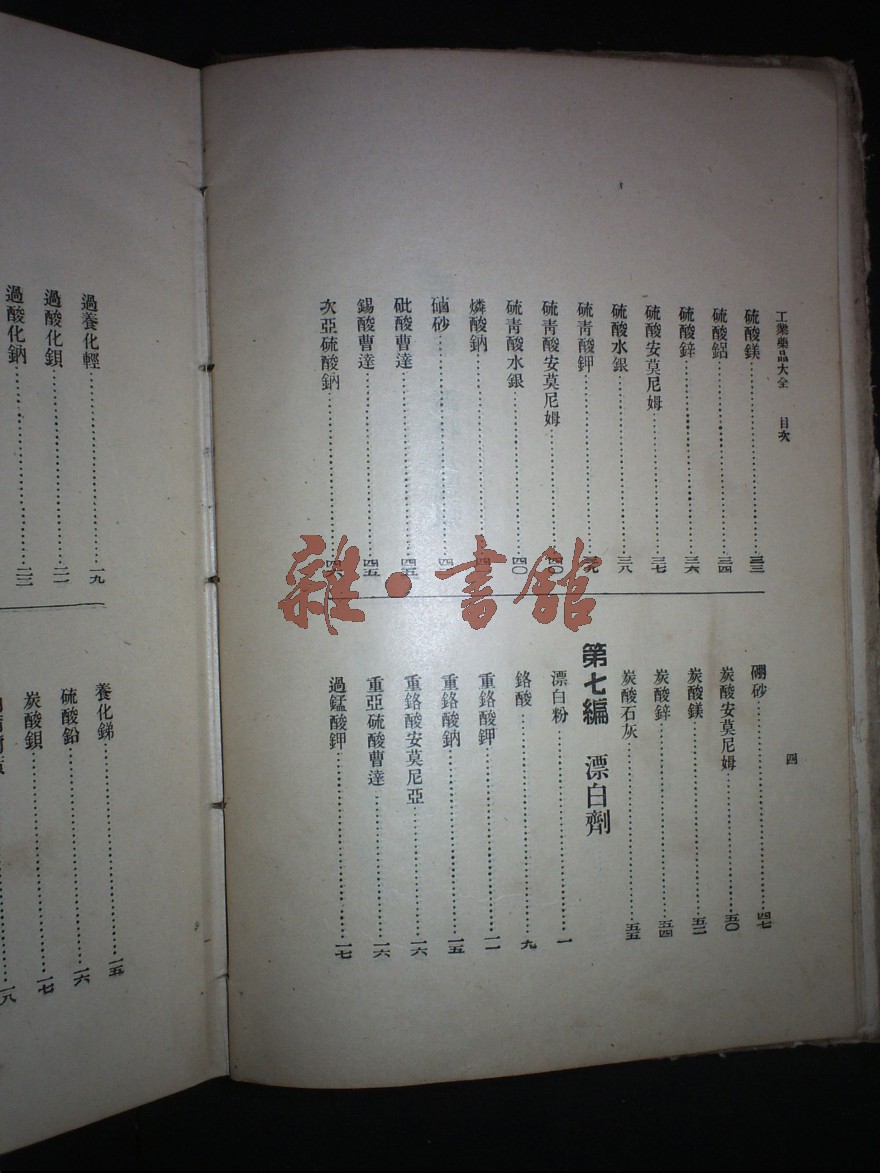 工業藥品大全 目次
四
硫酸鎂 三三
硫酸鋁 三四
硫酸鋅 三六
硫酸安莫尼姆 三七
硫酸水銀 三八
硫青酸鉀 三九
硫青酸安莫尼姆 四〇
硫青酸水銀 四〇
燐酸鈉
硇砂
砒酸曹達 四五
錫酸曹達 四五
次亞硫酸鈉 四六
硼砂 四七
炭酸安莫尼姆 五〇
炭酸鎂 五二
炭酸鋅 五四
炭酸石灰 五五
第七編 漂白劑
漂白粉 一
鉻酸 九
重鉻酸鉀 一一
重鉻酸鈉 一五
重鉻酸安莫尼亞 一六
重亞硫酸曹達 一六
過錳酸鉀 一七
過養化輕 一九
過酸化鋇 二一
過酸化鈉 二二
養化銻 一五
硫酸鉛 一六
炭酸鋇 一七
一八
雜·書館